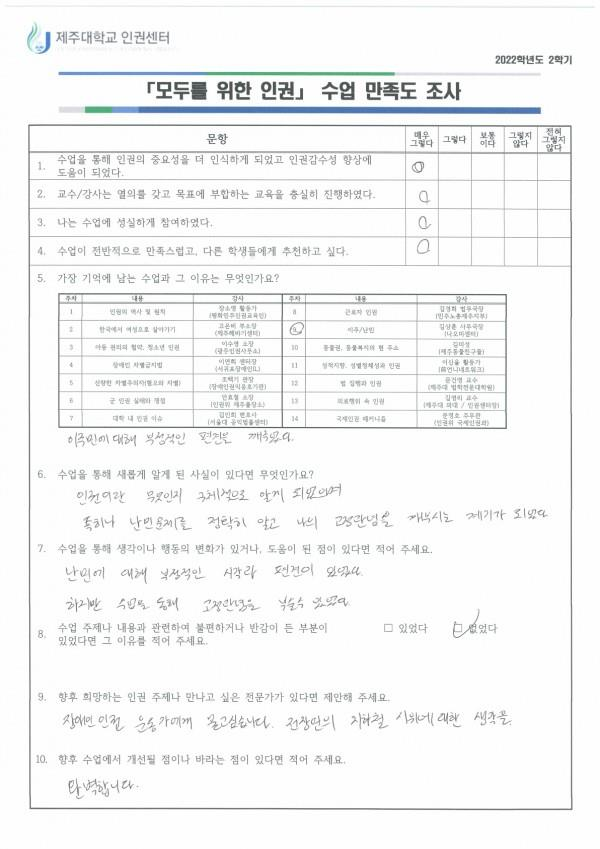 제주대학교 인권센터
2022학년도 2학기
「모두를 위한 인권」 수업 만족도 조사
문항 매우 그렇다 그렇다 보통이다 그렇지 않다 전혀 그렇지 않다
1. 수업을 통해 인권의 중요성을 더 인식하게 되었고 인권감수성 향상에
도움이 되었다.
2. 교수/강사는 열의를 갖고 목표에 부합하는 교육을 충실히 진행하였다.
3. 나는 수업에 성실하게 참여하였다.
4. 수업이 전반적으로 만족스럽고, 다른 학생들에게 추천하고 싶다.
5. 가장 기억에 남는 수업과 그 이유는 무엇인가요?
주차 내용 강사 주차 내용 강사
1 인권의 역사 및 원칙 장소영 활동가 (평화민주인권교육인) 8 근로자 인권 김경희 법무국장 (민주노총제주지부)
2 한국에서 여성으로 살아가기 고은비 부소장 (제주해바기센터) 9 이주/난민 김상훈 사무국장 (나오미센터)
3 아동 권리의 협약, 청소년 인권 이수영 소장 (광주인권사무소) 10 동물권, 동물복지의 현 주소 김미성 (제주동물친구들)
4 장애인 차별금지법 이연희 센터장 (서귀포장애인IL) 11 성적지향, 성별정체성과 인권 이신율 활동가 (前언니네트워크)
5 선량한 차별주의자(혐오와 차별) 조백기 관장 (장애인권익옹호기관) 12 법 집행과 인권 문건영 교수 (제주대 법학전문대학원)
6 군 인권 실태와 쟁점 안효철 소장 (인권위 제주출장소) 13 의료행위 속 인권 김영리 교수 (제주대 의대 / 인권센터장)
7 대학 내 인권 이슈 김인희 변호사 (서울대 공익법률센터) 14 국제인권 매커니즘 문정호 주무관 (인권위 국제인권과)
이주민에 대해 부정적인 편견을 깨줬다.
6. 수업을 통해 새롭게 알게 된 사실이 있다면 무엇인가요?
인권이란 무엇인지 구체적으로 알게 되었으며
특히나 난민문제를 정확히 알고 나의 고정관념을 깨부시는 계기가 되었다
7. 수업을 통해 생각이나 행동의 변화가 있거나, 도움이 된 점이 있다면 적어 주세요.
난민에 대해 부정적인 시각과 편견이 있었다.
하지만 수업을 통해 고정관념을 부술수 있었다.
8. 수업 주제나 내용과 관련하여 불편하거나 반감이 든 부분이 □ 있었다 □ 없었다
있었다면 그 이유를 적어 주세요.
9. 향후 희망하는 인권 주제나 만나고 싶은 전문가가 있다면 제안해 주세요.
장애인 인권 운동가에게 묻고싶습니다. 전장연의 지하철 시위에 대한 생각을
10. 향후 수업에서 개선될 점이나 바라는 점이 있다면 적어 주세요.
완벽합니다.